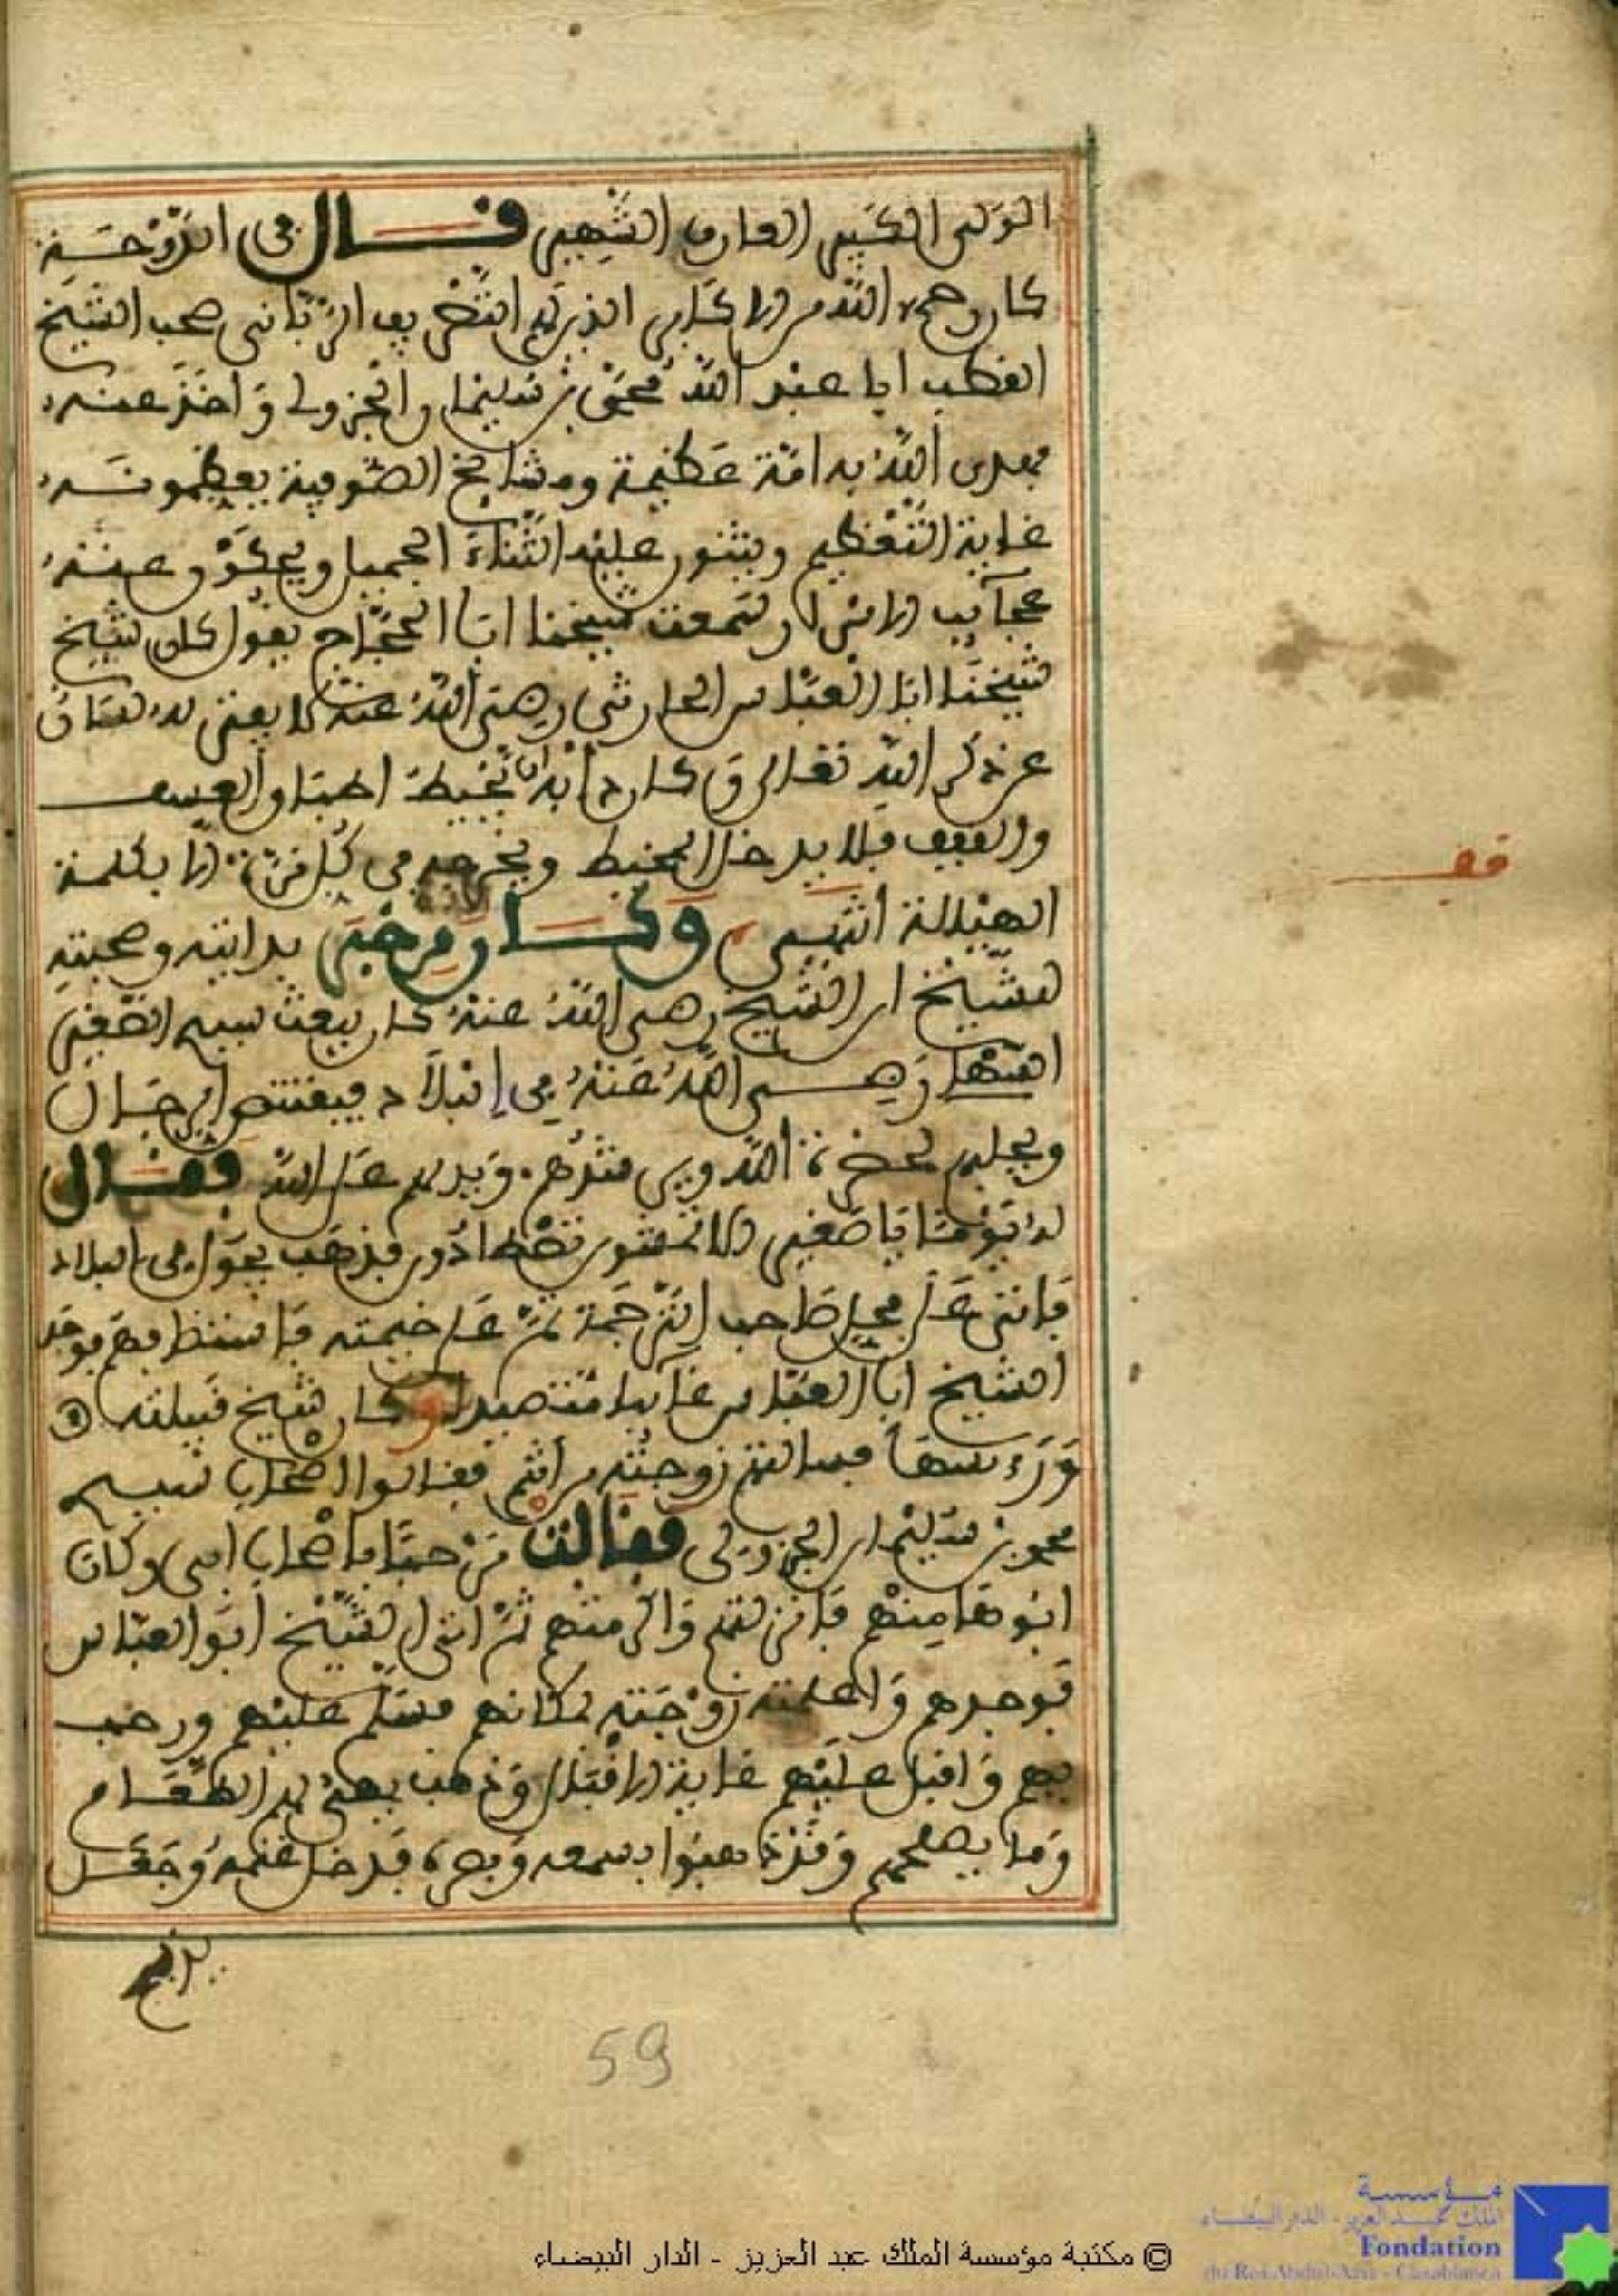 الولي الكبير العارف الشهير قال في الدوحة
كان رحمه الله من الاكابر الذين لهم التصريف الرباني صحب الشيخ
القطب ابا عبد الله محمد بن سليمان الجزولي واخذ عنه
فهدى الله به امة عظيمة ومشايخ الصوفية يعظمونه
غاية التعظيم ويثنون عليه الثناء الجميل ويحكون عنه
عجآيب الاسرار سمعت شيخنا ابا الحجاج يقول كان شيخ
شيخنا ابا العباس الحارثي رضي الله عنه لا يفتر له لسان
عن ذكر الله تعالى وكان دابه خياطة
والفقيف فلا يدخل المخيط ويخرجه في كل غرزة الا بكلمة
الهيللة انتهى وكان من خبر بدايته وصحبته
للشيخ ان الشيخ رضي الله عنه كان يبعث سيدي الصغير
السهلي رضي الله عنه في البلاد فيقتنص الرجال
ويجلبهم لحضرة الله ويرشدهم ويدلهم على الله فقال
له يوما يا صغير الا تمشون تصطادون فذهب يجول في البلاد
فاتى على محل صاحب الترجمة ثم على خيمته فاستضافهم فوجد
الشيخ ابا العباس غآيبا متصيدا وكان شيخ قبيلته
ورءيسها فسالتهم زوجته من انتم فقالوا اصحاب سيدي
محمد بن سليمان الجزولي فقالت مرحبا باصحاب ابي وكان
ابوها منهم فانزلتهم واكرمتهم ثم اتى الشيخ ابو العباس
فوجدهم واعلمته زوجته بمكانهم فسلم عليهم ورحب
بهم واقبل عليهم غاية الاقبال وذهب يهيئ لهم الطعام
وما يصلحهم وقد ذهبوا بسمعه وبصره فدخل غنمه وجعل
قف
59
© مكتبة مؤسسة الملك عبد العزيز - الدار البيضاء
مؤسسة
الملك عبد العزيز - الدار البيضاء
Fondation
du Roi Abdul-Aziz - Casablanca